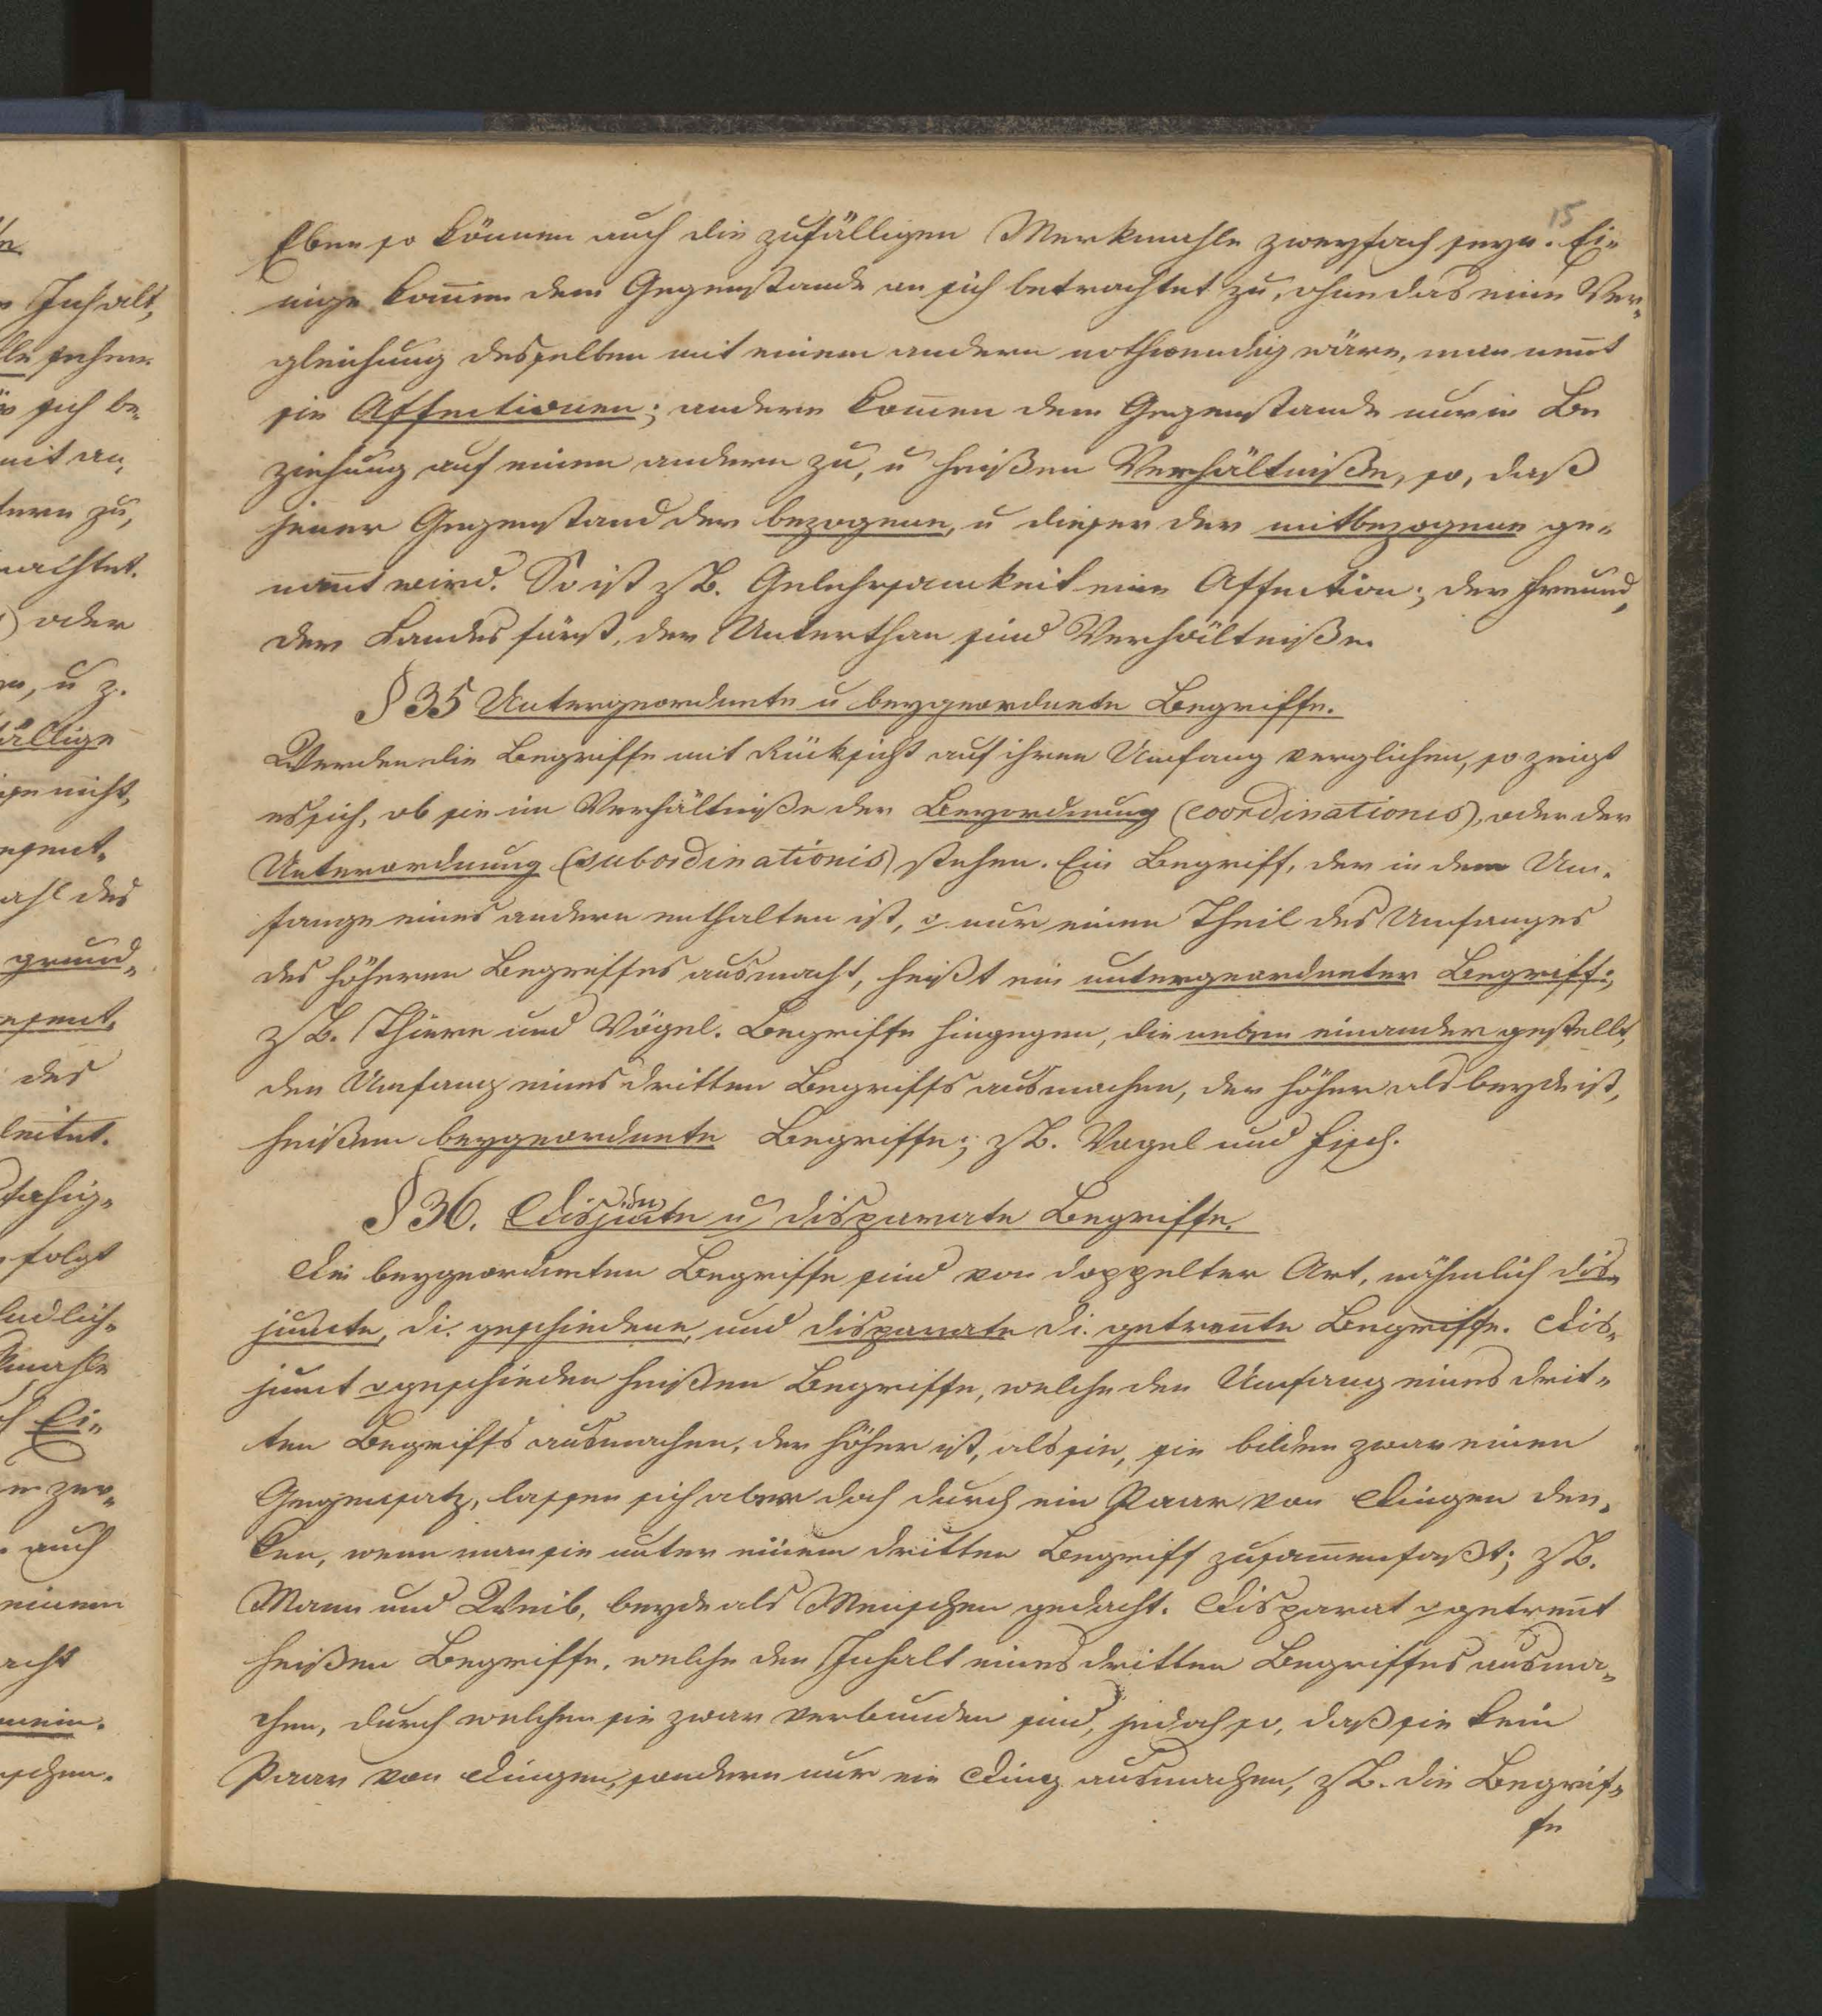 15
Eben so können auch die zufälligen Merkmahle zweyfach seyn. Ei-
nige kom̅en dem Gegenstande an sich betrachtet zu, ohne das eine Ver-
gleichung desselben mit einem andern nothwendig wäre, man nen̅t
sie Affectionen; andere kom̅en dem Gegenstande nur in Be
ziehung auf einen andern zu, u heißen Verhältniße, so, daß
jener Gegenstand der bezogene, u dieser der mitbezogene ge-
nan̅t wird. So ist z.B. Gelehrsamkeit eine Affection; der Freund,
der Landesfürst, der Unterthan sind Verhältniße.
§ 35 Untergeordnete u beygeordnete Begriffe.
Werden die Begriffe mit Rücksicht auf ihren Umfang verglichen, so zeigt
es sich, ob sie im Verhältniße der Beyordnung (coordinationis), oder der
Unterordnung (subordinationis) stehen. Ein Begriff, der in dem Um-
fange eines andern enthalten ist, nur einen Theil des Umfanges
des höheren Begriffes ausmacht, heißt ein untergeordneter Begriff;
z.B. Thiere und Vögel. Begriffe hingegen, die neben einander gestellt,
den Umfang eines dritten Begriffs ausmachen, der höher als beyde ist,
heißen beygeordnete Begriffe; z.B. Vogel und Fisch.
§ 36. Disjuncte u disparate Begriffe.
Die beygeordneten Begriffe sind von doppelter Art, nähmlich dis-
juncte, d.i. geschiedene, und disparate d.i. getren̅te Begriffe. Dis-
junct geschieden heißen Begriffe, welche den Umfang eines drit-
ten Begriffs ausmachen, der höher ist, als sie, sie bilden zwar einen
Gegensatz, lassen sich aber doch durch ein Paar von Dingen den-
ken, wenn man sie unter einem dritten Begriff zusam̅enfaßt; z.B.
Mann und Weib, beyde als Menschen gedacht. Disparat getren̅t
heißen Begriffe, welche den Inhalt eines dritten Begriffes ausma-
chen, durch welchen sie zwar verbunden sind, jedoch so, daß sie kein
Paar von Dingen, sondern nur ein Ding ausmachen, z.B. die Begrif-
fe